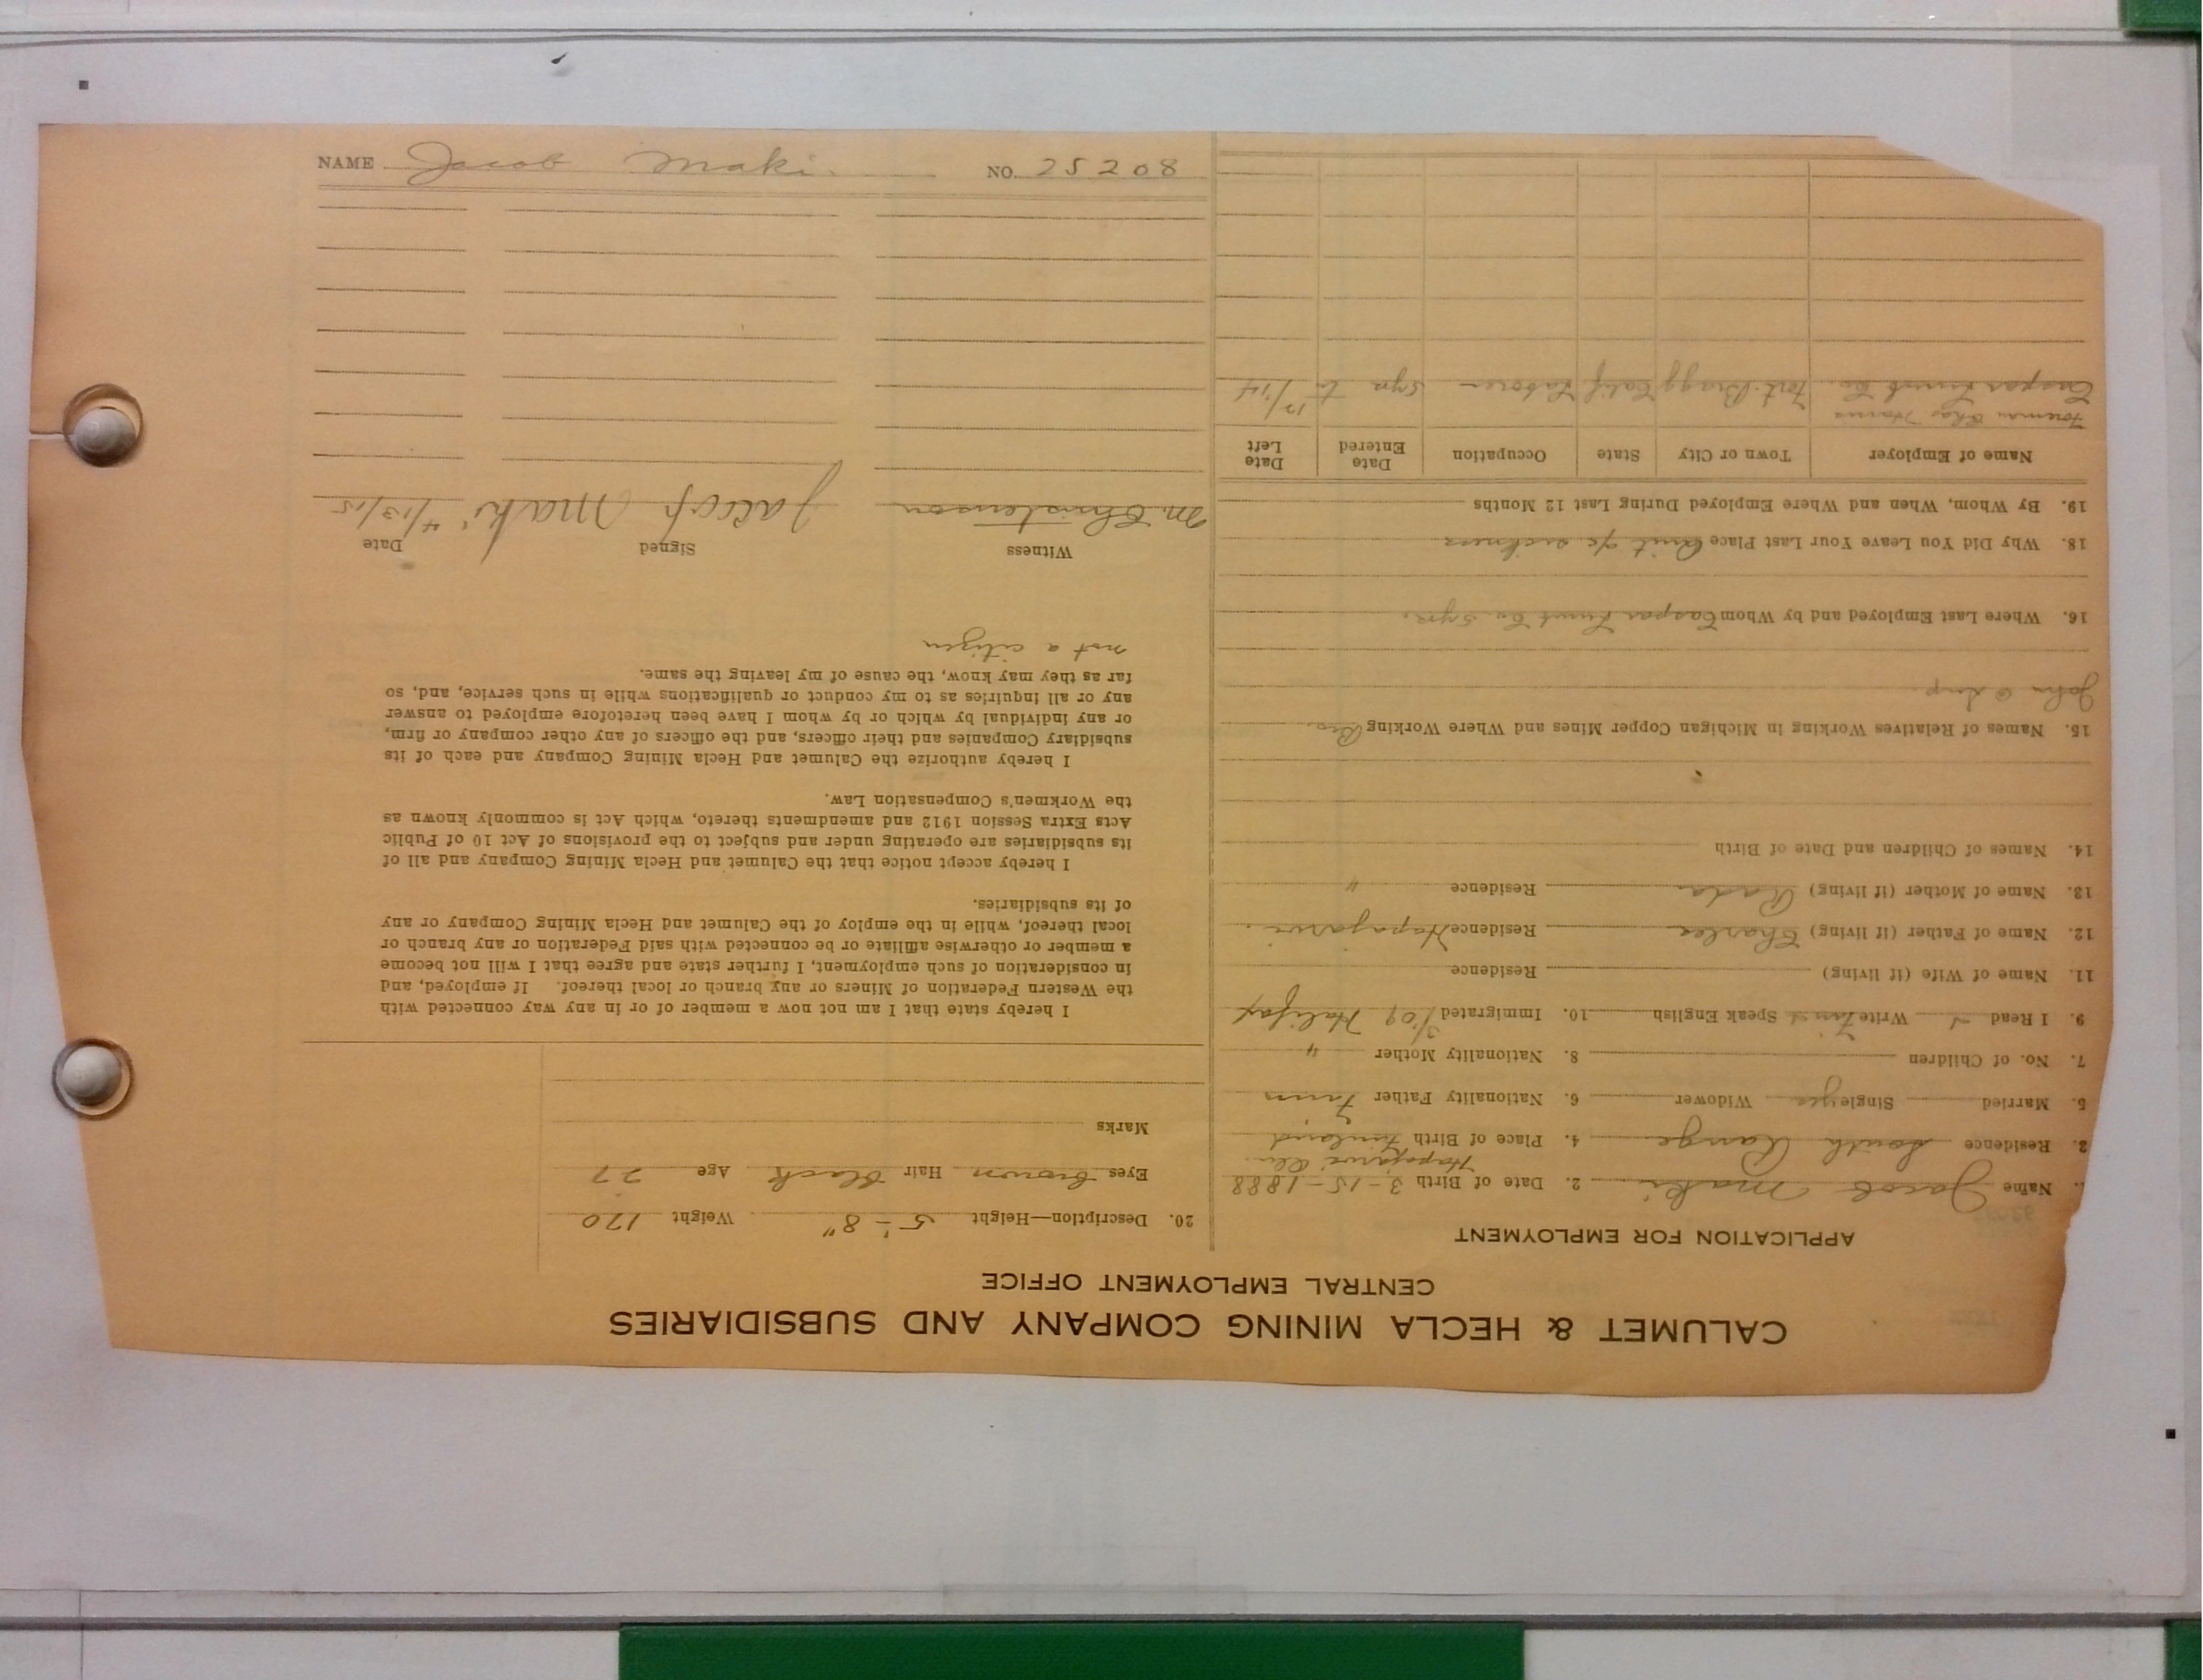 CALUMET & HECLA MINING COMPANY AND SUBSIDIARIES
CENTRAL EMPLOYMENT OFFICE
APPLICATION FOR EMPLOYMENT
Name Jacob Maki 2. Date of Birth 3-15-1888
3. Residence South Range 4. Place of Birth Finland
5. Married Single yes Widower 6. Nationality Father Finn
7. No. of Children 8. Nationality Mother "
9. I Read Write Finnish Speak English 10. Immigrated 3/09 Halifax
11. Name of Wife (if living) Residence
12. Name of Father (if living) Charles Residence Hapajarvi
13. Name of Mother (if living) Residence "
14. Names of Children and Date of Birth
15. Names of Relatives Working in Michigan Copper Mines and Where Working Bro.
John @
16. Where Last Employed and by Whom Caspar Lumb Co 5yrs.
18. Why Did You Leave Your Last Place Quit a/c sickness
19. By Whom, When and Where Employed During Last 12 Months
Name of Employer Town or City State Occupation Date Entered Date Left
Foreman Chas
Caspar Lumb Co. Fort Bragg Calif Laborer 5yrs to 12/14
20. Description—Height 5'-8" Weight 170
Eyes Brown Hair Black Age 27
Marks
I hereby state that I am not now a member of or in any way connected with
the Western Federation of Miners or any branch or local thereof. If employed, and
in consideration of such employment, I further state and agree that I will not become
a member or otherwise affiliate or be connected with said Federation or any branch or
local thereof, while in the employ of the Calumet and Hecla Mining Company or any
of its subsidiaries.
I hereby accept notice that the Calumet and Hecla Mining Company and all of
its subsidiaries are operating under and subject to the provisions of Act 10 of Public
Acts Extra Session 1912 and amendments thereto, which Act is commonly known as
the Workmen's Compensation Law.
I hereby authorize the Calumet and Hecla Mining Company and each of its
subsidiary Companies and their officers, and the officers of any other company or firm,
or any individual by which or by whom I have been heretofore employed to answer
any or all inquiries as to my conduct or qualifications while in such service, and, so
far as they may know, the cause of my leaving the same.
not a citizen
Witness Signed Date
M. Christenson Jacop Maki 4/13/15
NAME Jacob Maki. NO. 25208